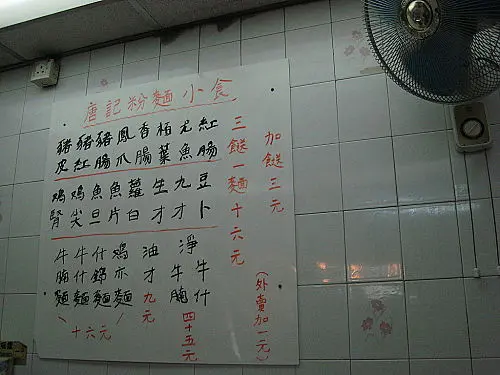 唐記粉麵小食
豬皮
豬紅
豬腸
鳳爪
香腸
栢葉
尤魚
紅腸
鸡腎
鸡尖
魚旦
魚片
蘿白
生才
九才
豆卜
牛腩麵
牛什麵
什錦麵
鸡亦麵
十六元
油才九元
淨牛腩
牛什
四十五元
三餸一麵十六元
加餸三元
(外賣加一元)